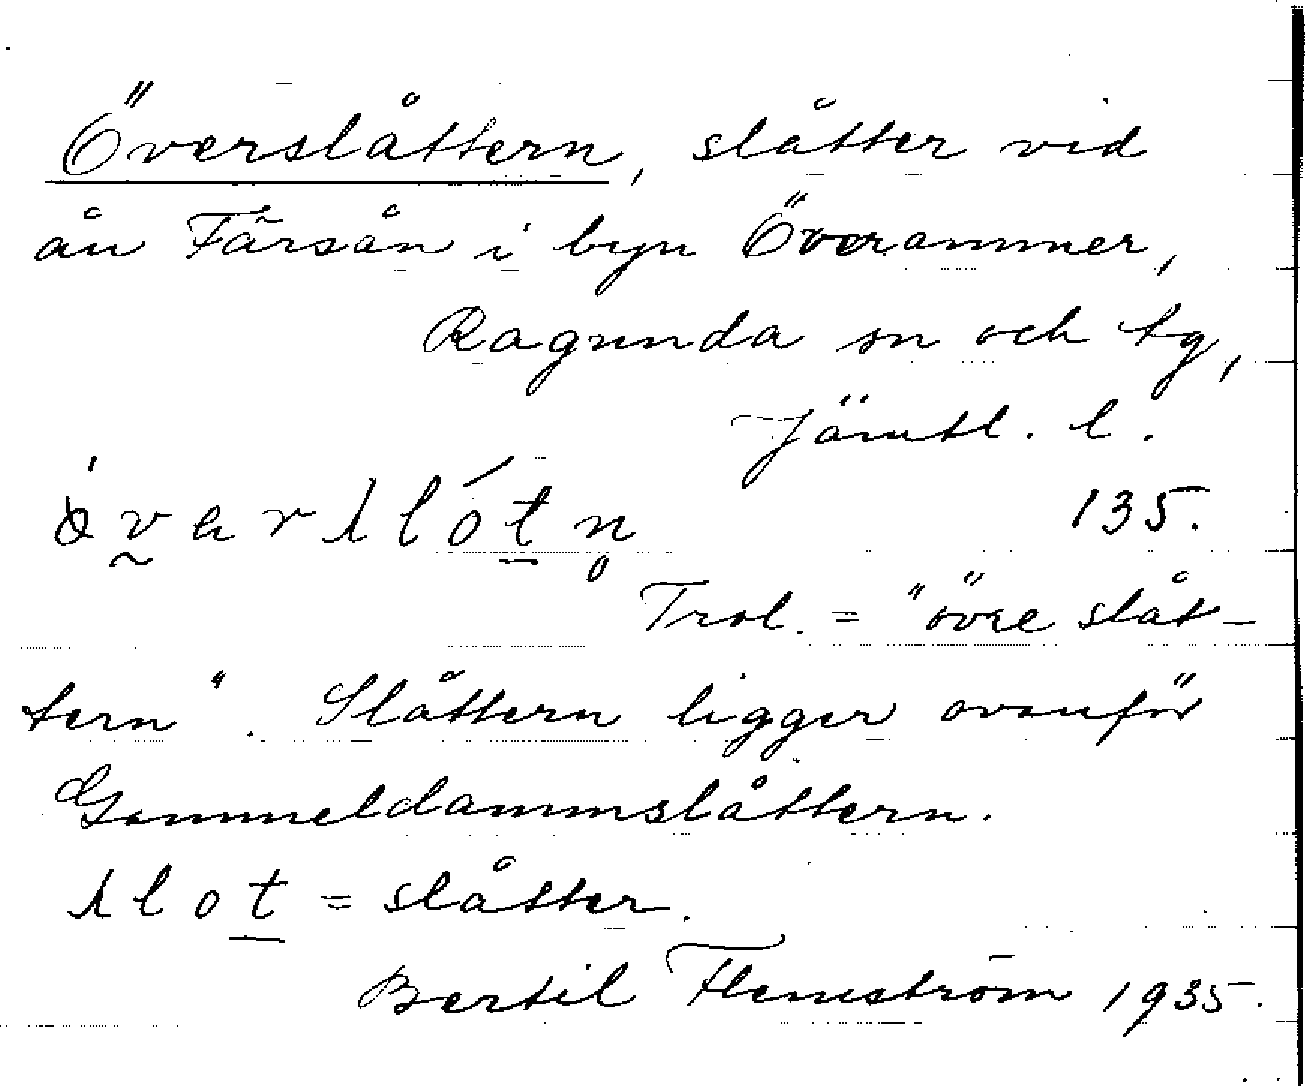 Överslåttern, slåtter vid
ån Färsån i byn Överammer,
Ragunda sn och tg,
Jämtl. l.
135.
Trol. = "övre slåt-
tern". Slåttern ligger ovanför
Gammeldammslåttern.
slot = slåtter.
Bertil Flemström 1935.